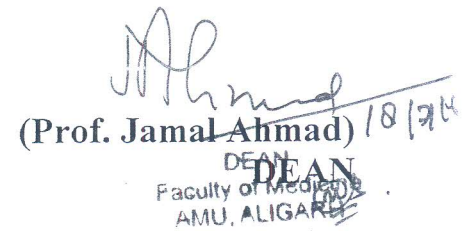 (Prof. Jamal Ahmad)
DEAN
DEAN
Faculty of Medicine
AMU, ALIGARH